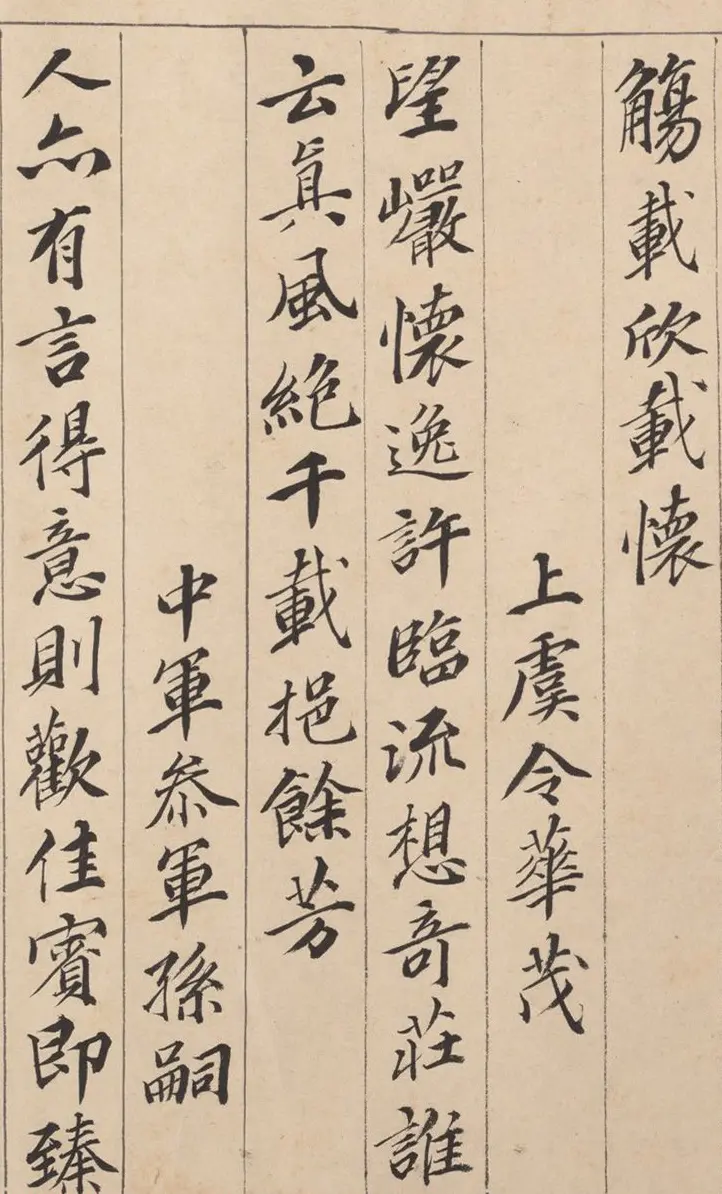 觴載欣載懷
上虞令華茂
望巖懷逸許臨流想奇莊誰
云真風絕千載挹餘芳
中軍參軍孫嗣
人亦有言得意則歡佳賓即臻